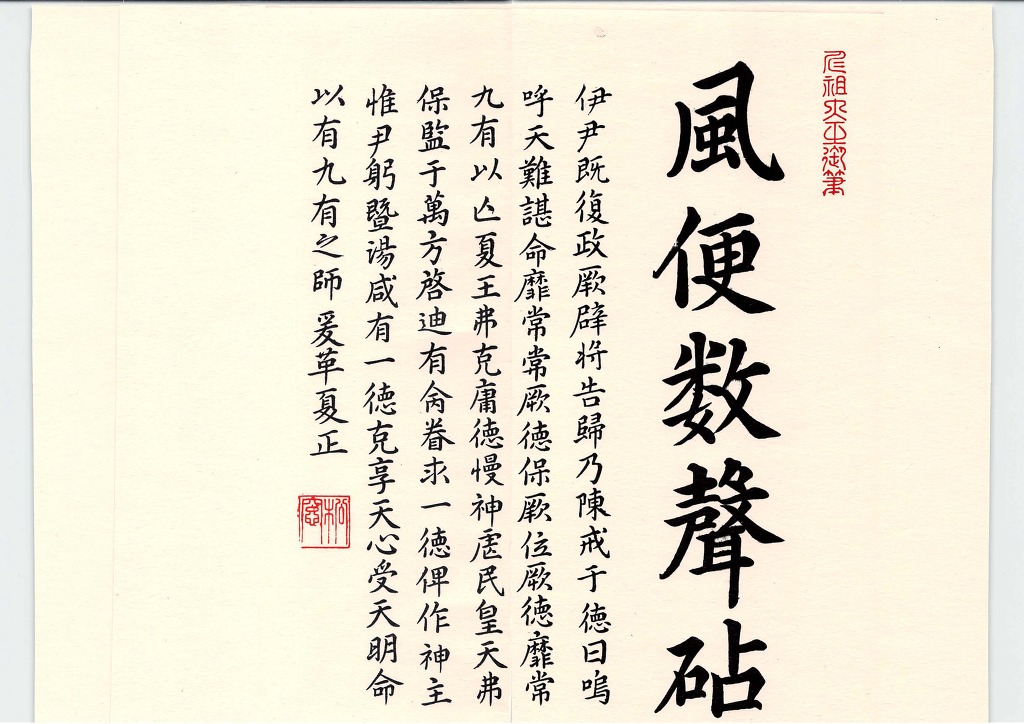 祖大王御筆
風便数聲砧
伊尹既復政厥辟将告歸乃陳戒于徳曰嗚
呼天難諶命靡常常厥徳保厥位厥徳靡常
九有以亾夏王弗克庸徳慢神虐民皇天弗
保監于萬方啓迪有命眷求一徳俾作神主
惟尹躬暨湯咸有一徳克享天心受天明命
以有九有之師爰革夏正